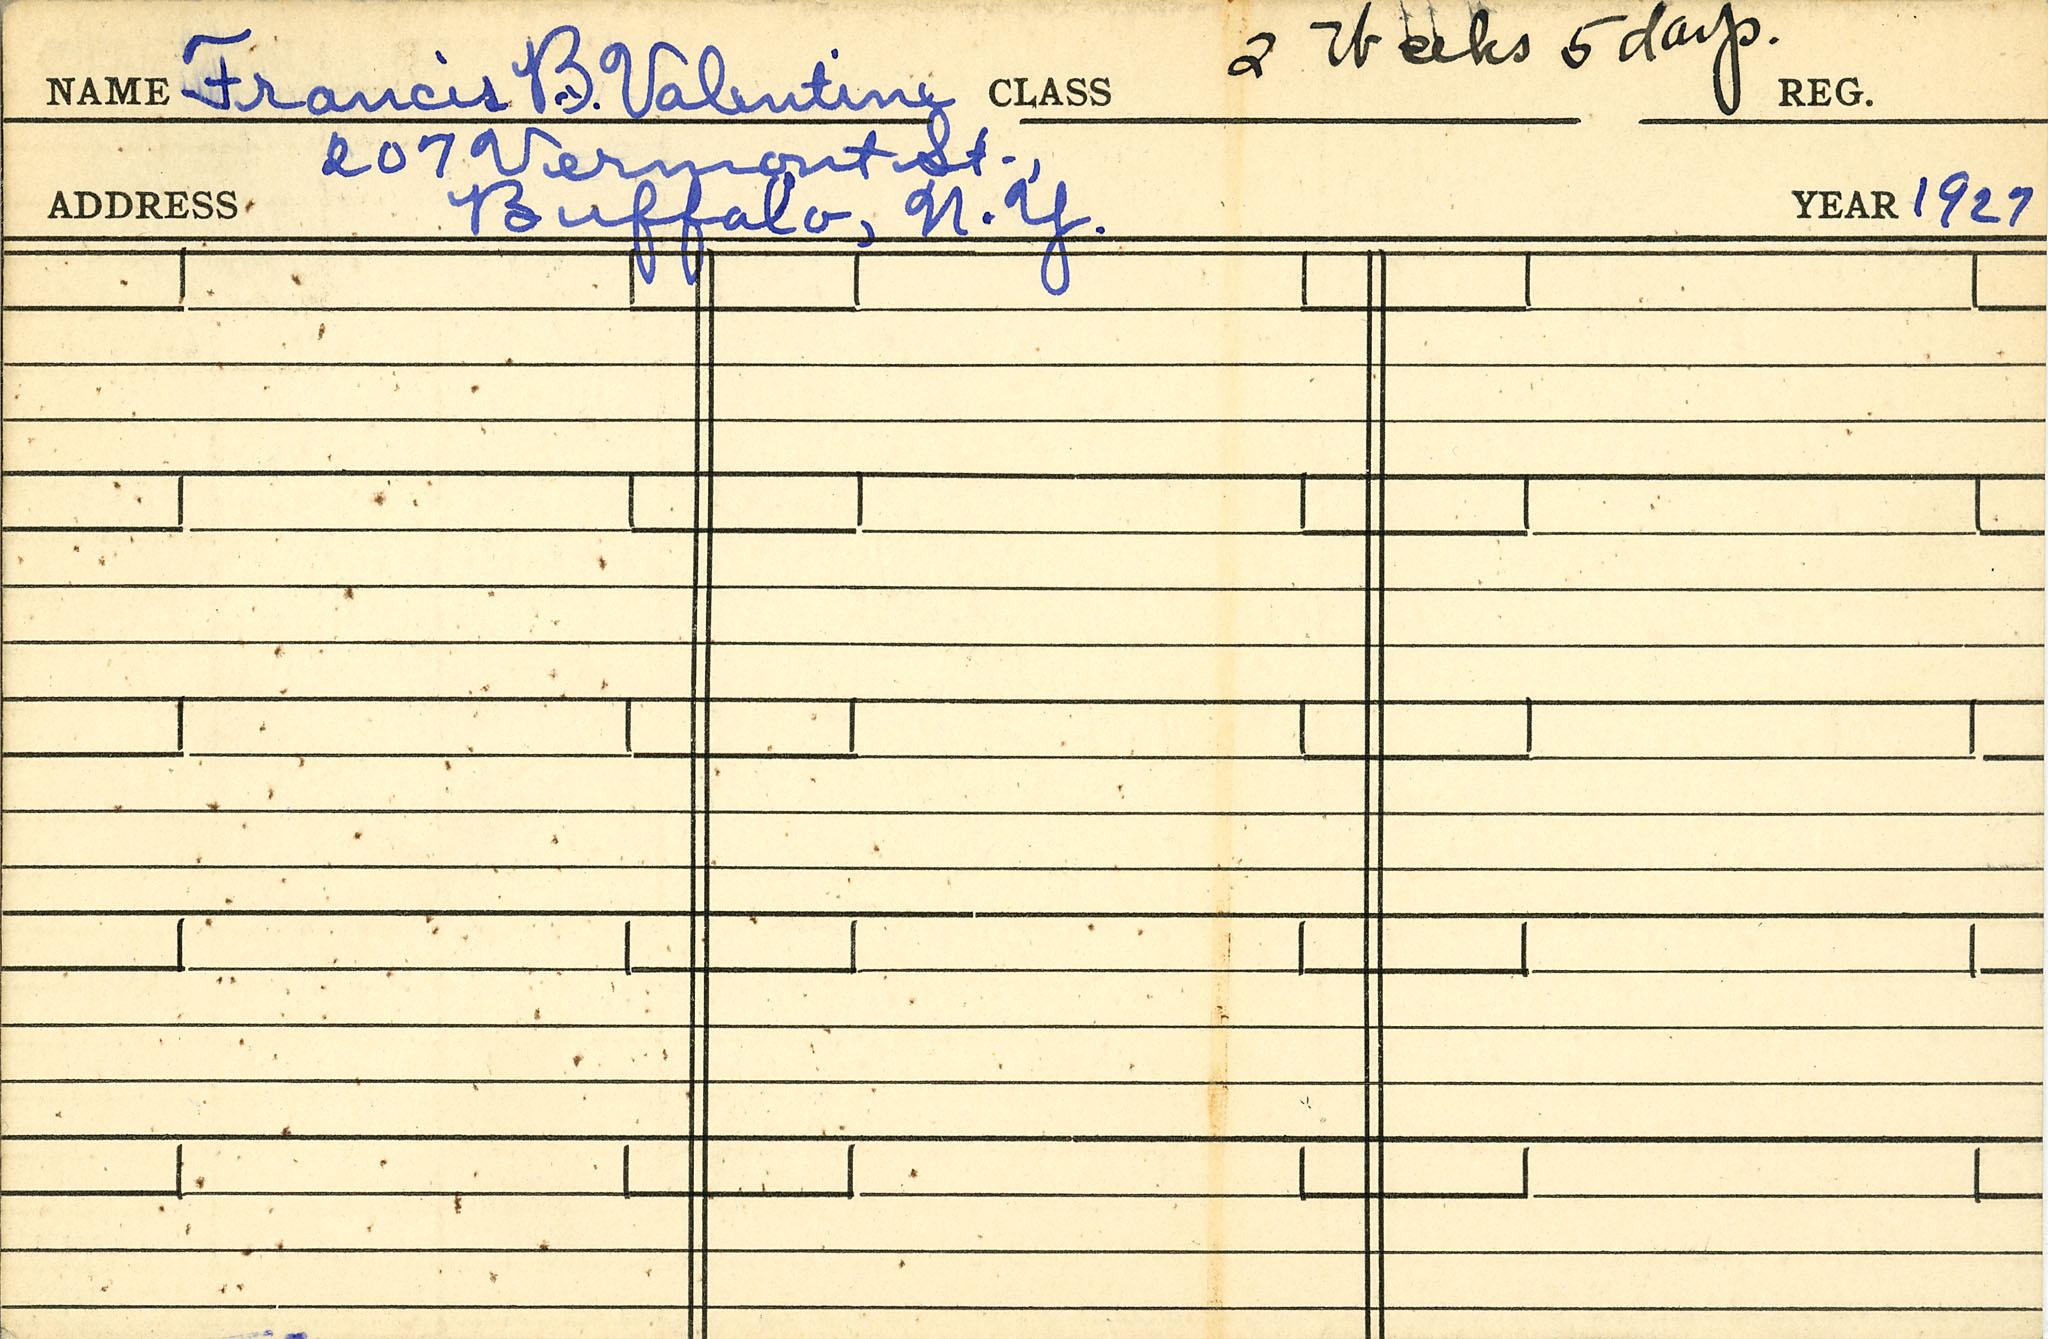 2 Weeks 5 days.
NAME Francis B. Valentine CLASS REG.
207 Vermont St.,
ADDRESS Buffalo, N.Y. YEAR 1927